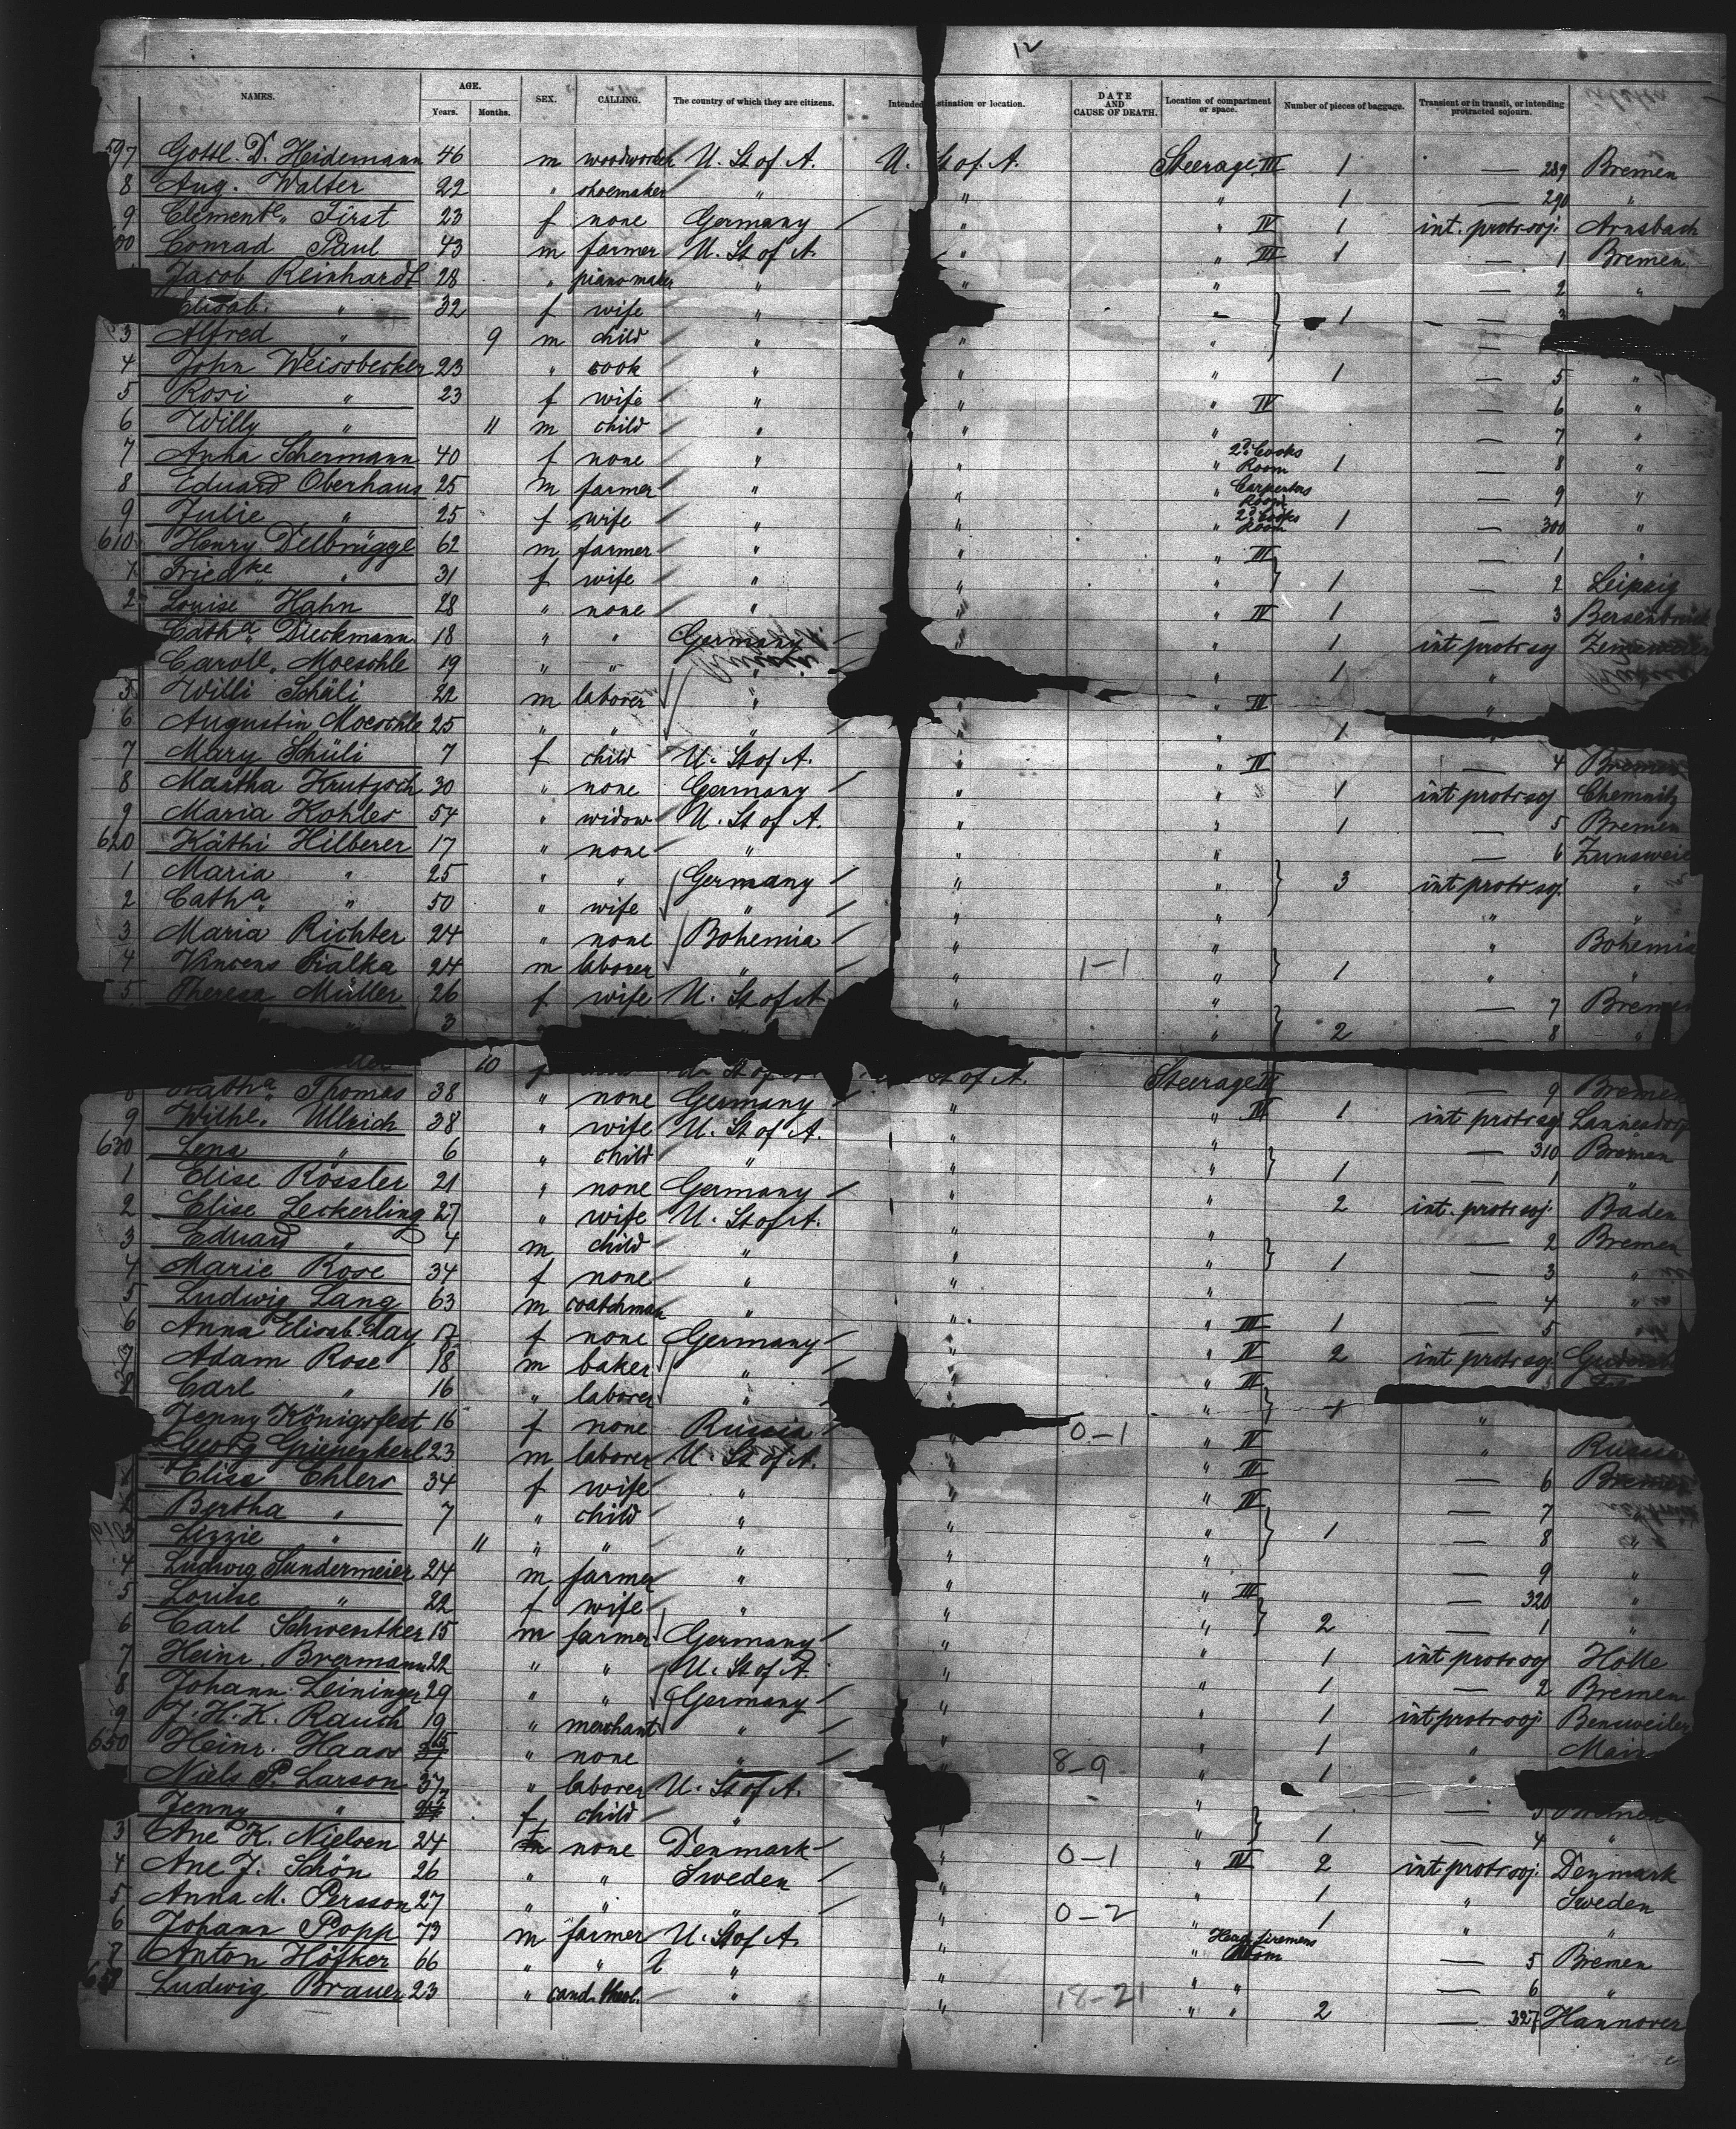 12
NAMES. AGE. Years. Months. SEX. CALLING. The country of which they are citizens. Intended stination or location. DATE AND CAUSE OF DEATH. Location of compartment or space. Number of pieces of baggage. Transient or in transit, or intending protracted sojourn.
597 Gottl. D. Heidemann 46 m woodworker U. St of A. U. St of A. Steerage III 1 — 289 Bremen
8 Aug. Walter 22 " shoemaker " " " 1 — 290 "
9 Clemente. First 23 f none Germany " " IV 1 int. protr soj. Arnsbach
600 Conrad Paul 43 m farmer U. St of A. " " III 1 — 1 Bremen
Jacob Reinhardt 28 " pianomaker " " — 2 "
Elisab. " 32 f wife " " 1 — 3
3 Alfred " 9 m child " " " —
4 John Weissbecker 23 " cook " " " 1 — 5 "
5 Rosi " 23 f wife " " " IV — 6 "
6 Willy " 11 m child " " " — 7 "
7 Anna Schermann 40 f none " " " 2d Cooks Room 1 — 8 "
8 Eduard Oberhaus 25 m farmer " " " Carpenters Room — 9 "
9 Julie " 25 f wife " " " 2d Cooks Room 1 — 300 "
610 Henry Delbrügge 62 m farmer " " " III — 1 "
1 Friedke " 31 f wife " " " 1 — 2 Leipzig
2 Louise Hahn 28 " none " " " IV 1 — 3 Bersenbrück
Catha Dieckmann 18 " " Germany " " 1 int protr soj
Caroll. Moeschle 19 " " " " 1 "
5 Willi Schüli 22 m laborer " " " IV "
6 Augustin Moeschle 25 " " " " " 1 "
7 Mary Schüli 7 f child U. St of A. " " IV — 4 Bremen
8 Martha Krutzsch 30 " none Germany " " 1 int protr soj Chemnitz
9 Maria Kohler 54 " widow U. St of A. " " 1 — 5 Bremen
620 Käthi Hilberer 17 " none " " " — 6 Zunsweil
1 Maria " 25 " " Germany " " 3 int protr soj. "
2 Catha. " 50 " wife " " " " "
3 Maria Richter 24 " none Bohemia " " " Bohemia
4 Vincens Fialka 24 m laborer " " 1-1 " 1 " "
5 Theresa Müller 26 f wife U. St of A " " — 7 Bremen
" 3 " 2 — 8 "
10 St of A. Steerage IV — 9 Bremen
Catha Thomas 38 " none Germany " " IV 1 int protr soj Lannesdorf
9 Wilhe. Ullrich 38 " wife U. St of A. " " — 310 Bremen
630 Lena " 6 " child " " " 1 — 1 "
1 Elise Rössler 21 " none Germany " " 2 int. protr soj. Baden
2 Elise Leckerling 27 " wife U. St of A. " " — 2 Bremen
3 Eduard " 4 m child " " " 1 — 3 "
4 Marie Rose 34 f none " " " — 4 "
5 Ludwig Lang 63 m coatchman " " " III 1 — 5 "
6 Anna Elisab. May 17 f none Germany " " IV 2 int protr soj
7 Adam Rose 18 m baker " " " III
8 Carl " 16 " laborer " " 1 "
Jenny Königsfest 16 f none Russia " 0-1 " IV " Russia
Georg Griepenkerl 23 m laborer U. St of A. " " IV — 6 Bremen
1 Elise Ehlers 34 f wife " " " IV — 7 "
2 Bertha " 7 " child " " " 1 — 8 "
3 Lizzie " 11 " " " " " — 9 "
4 Ludwig Sundermeier 24 m farmer " " " III — 320 "
5 Louise " 22 f wife " " " 2 — 1 "
6 Carl Schwentker 15 m farmer Germany " " 1 int protr soj Holle
7 Heinr. Brermann 22 " " U. St of A. " " 1 — 2 Bremen
8 Johann Leininger 29 " " Germany " " 1 int protr soj. Bensweiler
9 J. H. K. Rauch 19 " merchant " " " 1 "
650 Heinr. Haas 15 " none " " 8-9 " 1 "
Niels P. Larson 37 " laborer U. St of A. " " — 3
Jenny " f child " " " 1 — 4 "
3 Ane K. Nielsen 24 f none Denmark " 0-1 " IV 2 int protr soj. Denmark
4 Ane J. Schön 26 " " Sweden " " 1 " Sweden
5 Anna M. Persson 27 " " " " 0-2 " 1 " "
6 Johann Popp 73 m farmer U. St of A. " " Head firemens Room — 5 Bremen
7 Anton Höfker 66 " " " " " " — 6 "
658 Ludwig Brauer 23 " cand. theol. " " 18-21 " " 2 — 327 Hannover